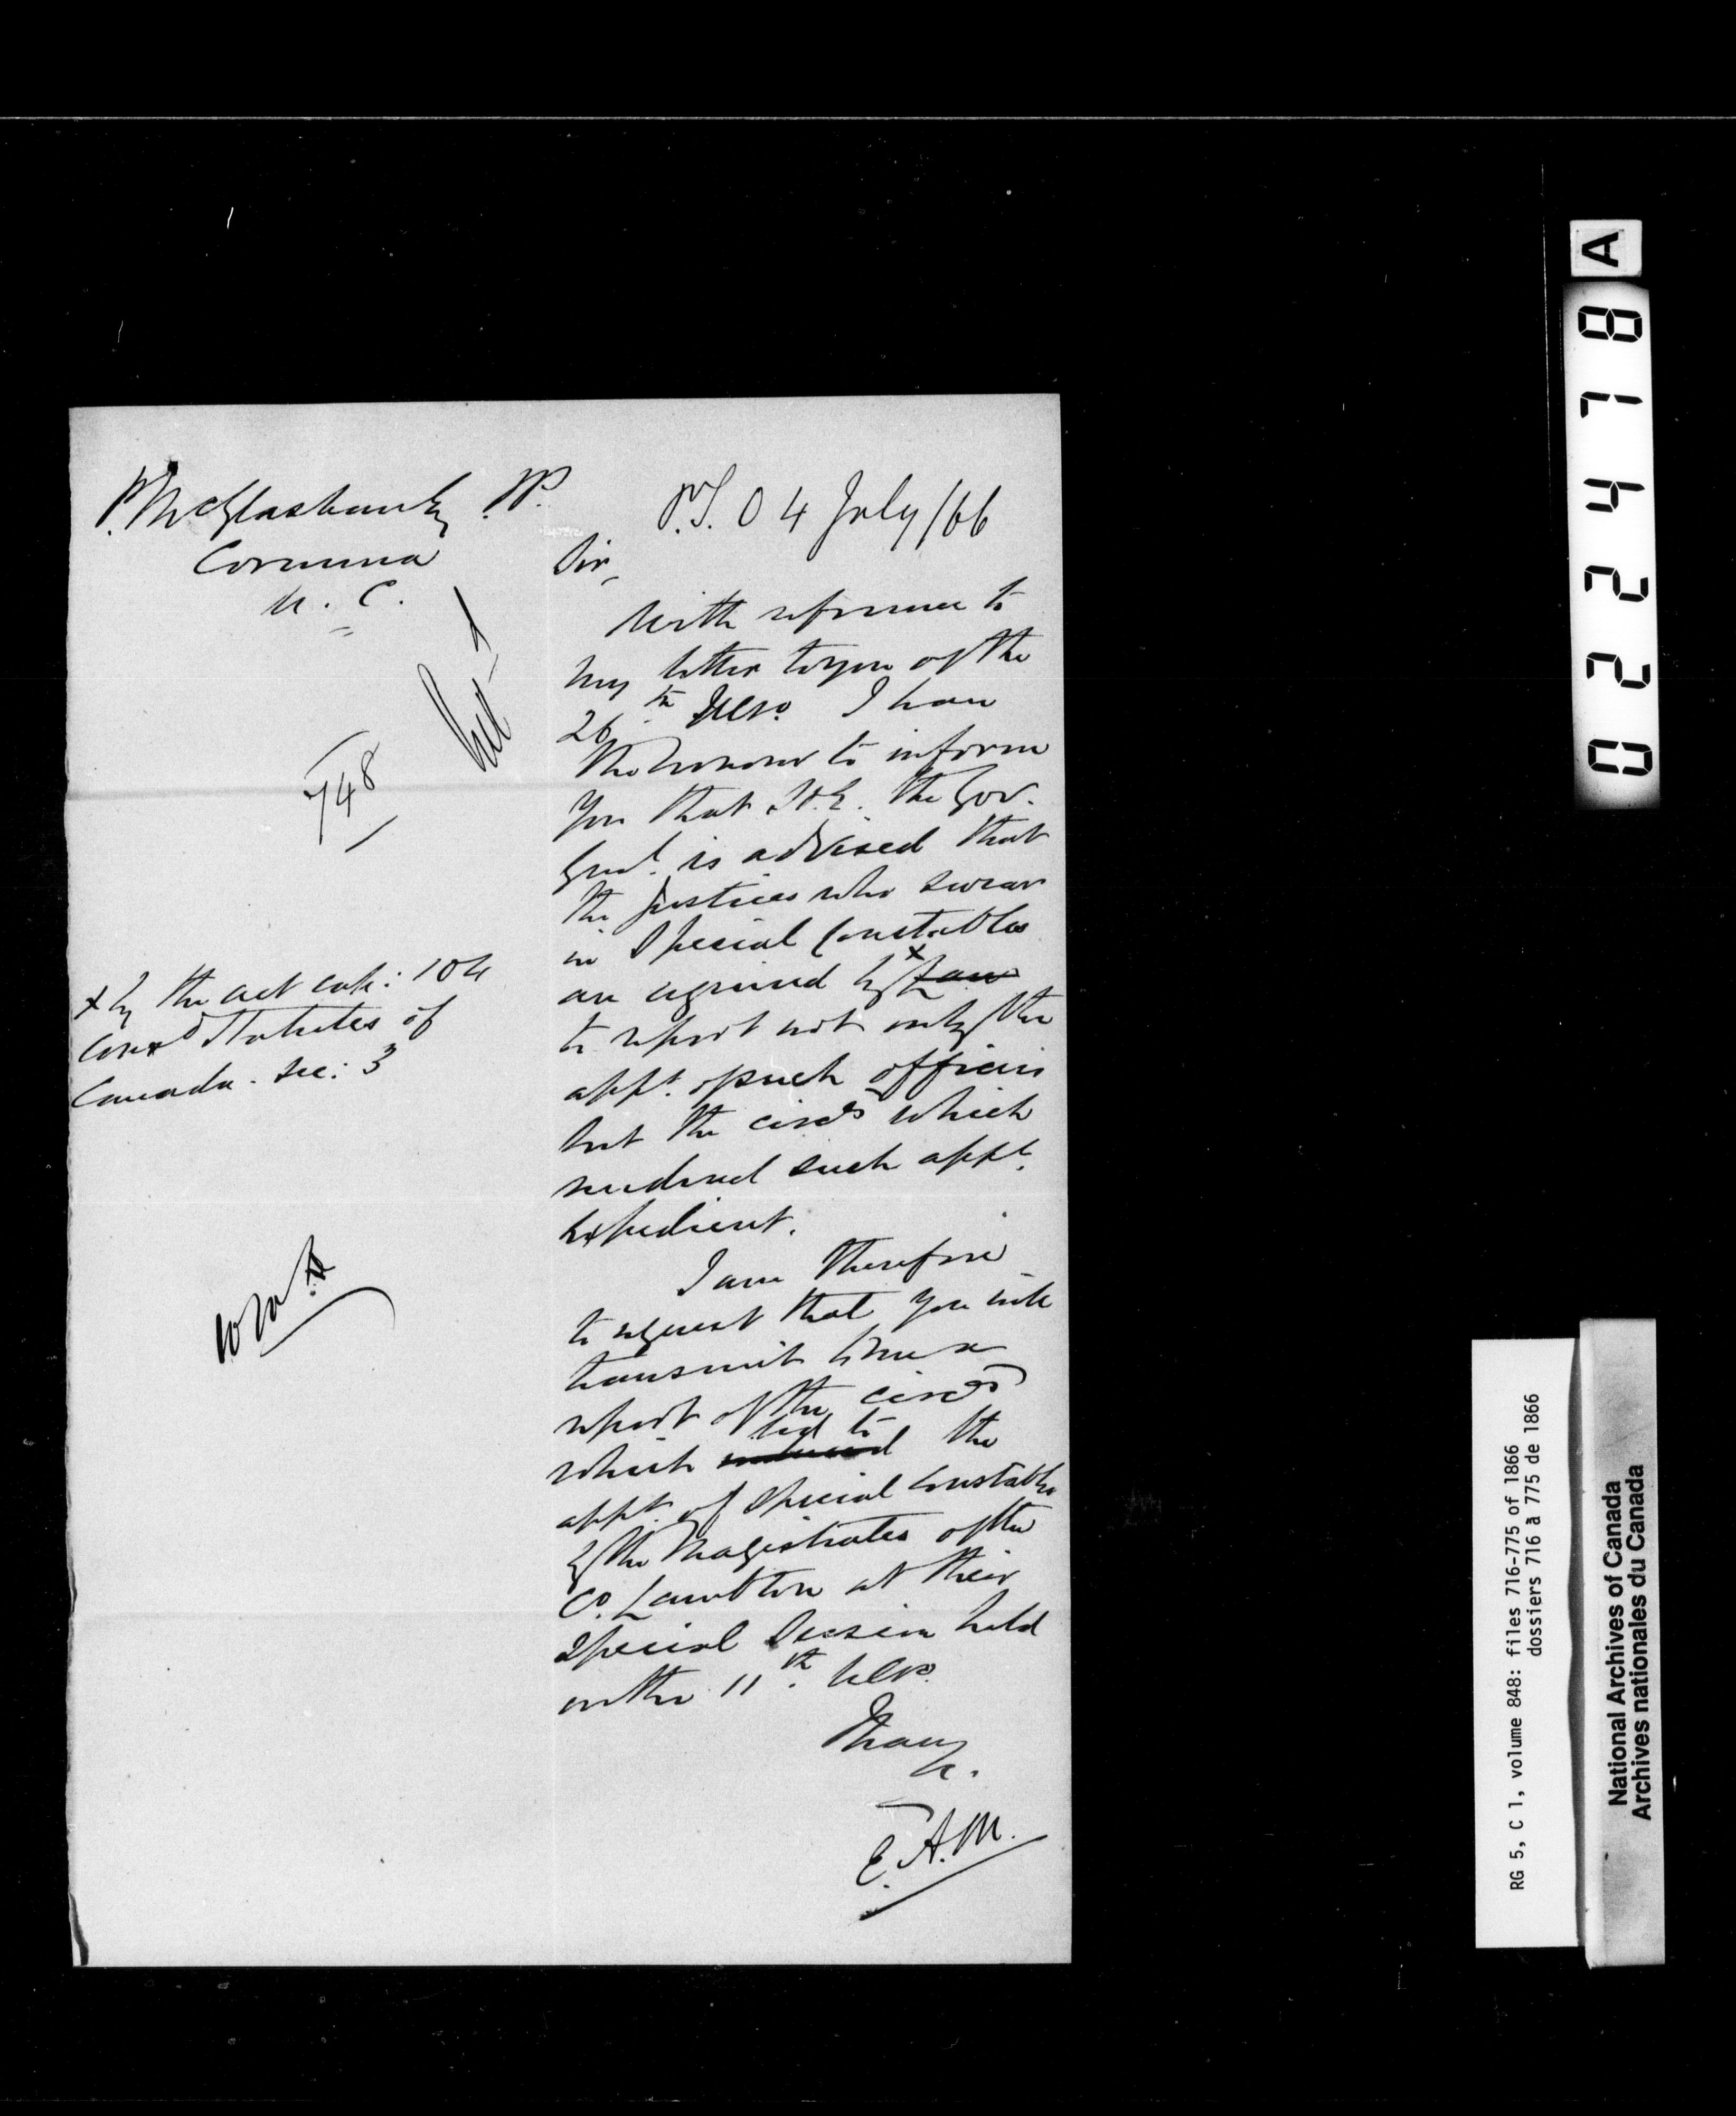 P. McGlashan JP.
Corunna
U. C.
748
P.S.O 4 July/66
Sir,
With reference to
my letter to you of the
26th Ulto. I have
the honor to inform
you that H.E. the Gov.
Genl. is advised that
the justices who swear
in Special Constables
are required by x Law
to report not only the
appt. of such officers
but the circs which
rendered such appt.
expedient.
x by the act cap: 104
Consd Statutes of
Canada. Sec: 3
I am therefore
to request that you will
transmit to me a
report of the circs
which led to the
appt. of Special Constables
by the Magistrates of the
Co. Lambton at their
Special Session held
on the 11th. Ulto.
I have
&.
E.A.M.
A
022478
RG 5, C 1, volume 848: files 716-775 of 1866
dossiers 716 à 775 de 1866
National Archives of Canada
Archives nationales du Canada